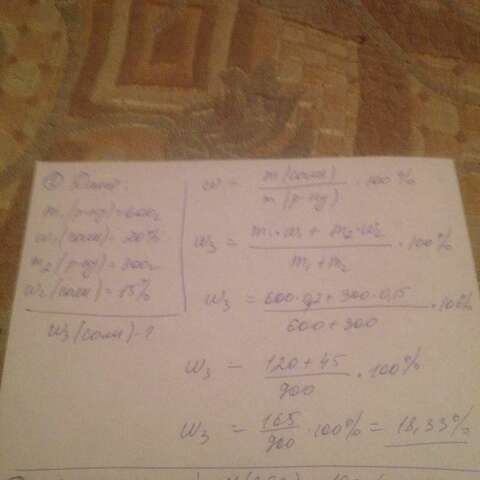 ② Дано:
m₁(р-ра) = 600г
w₁(соли) = 20%
m₂(р-ра) = 300г
w₂(соли) = 15%
w₃(соли) - ?
w = m(соли) / m(р-ра) · 100%
w₃ = m₁·w₁ + m₂·w₂ / m₁+m₂ · 100%
w₃ = 600·0,2 + 300·0,15 / 600+300 · 100%
w₃ = 120+45 / 900 · 100%
w₃ = 165 / 900 · 100% = 18,33%